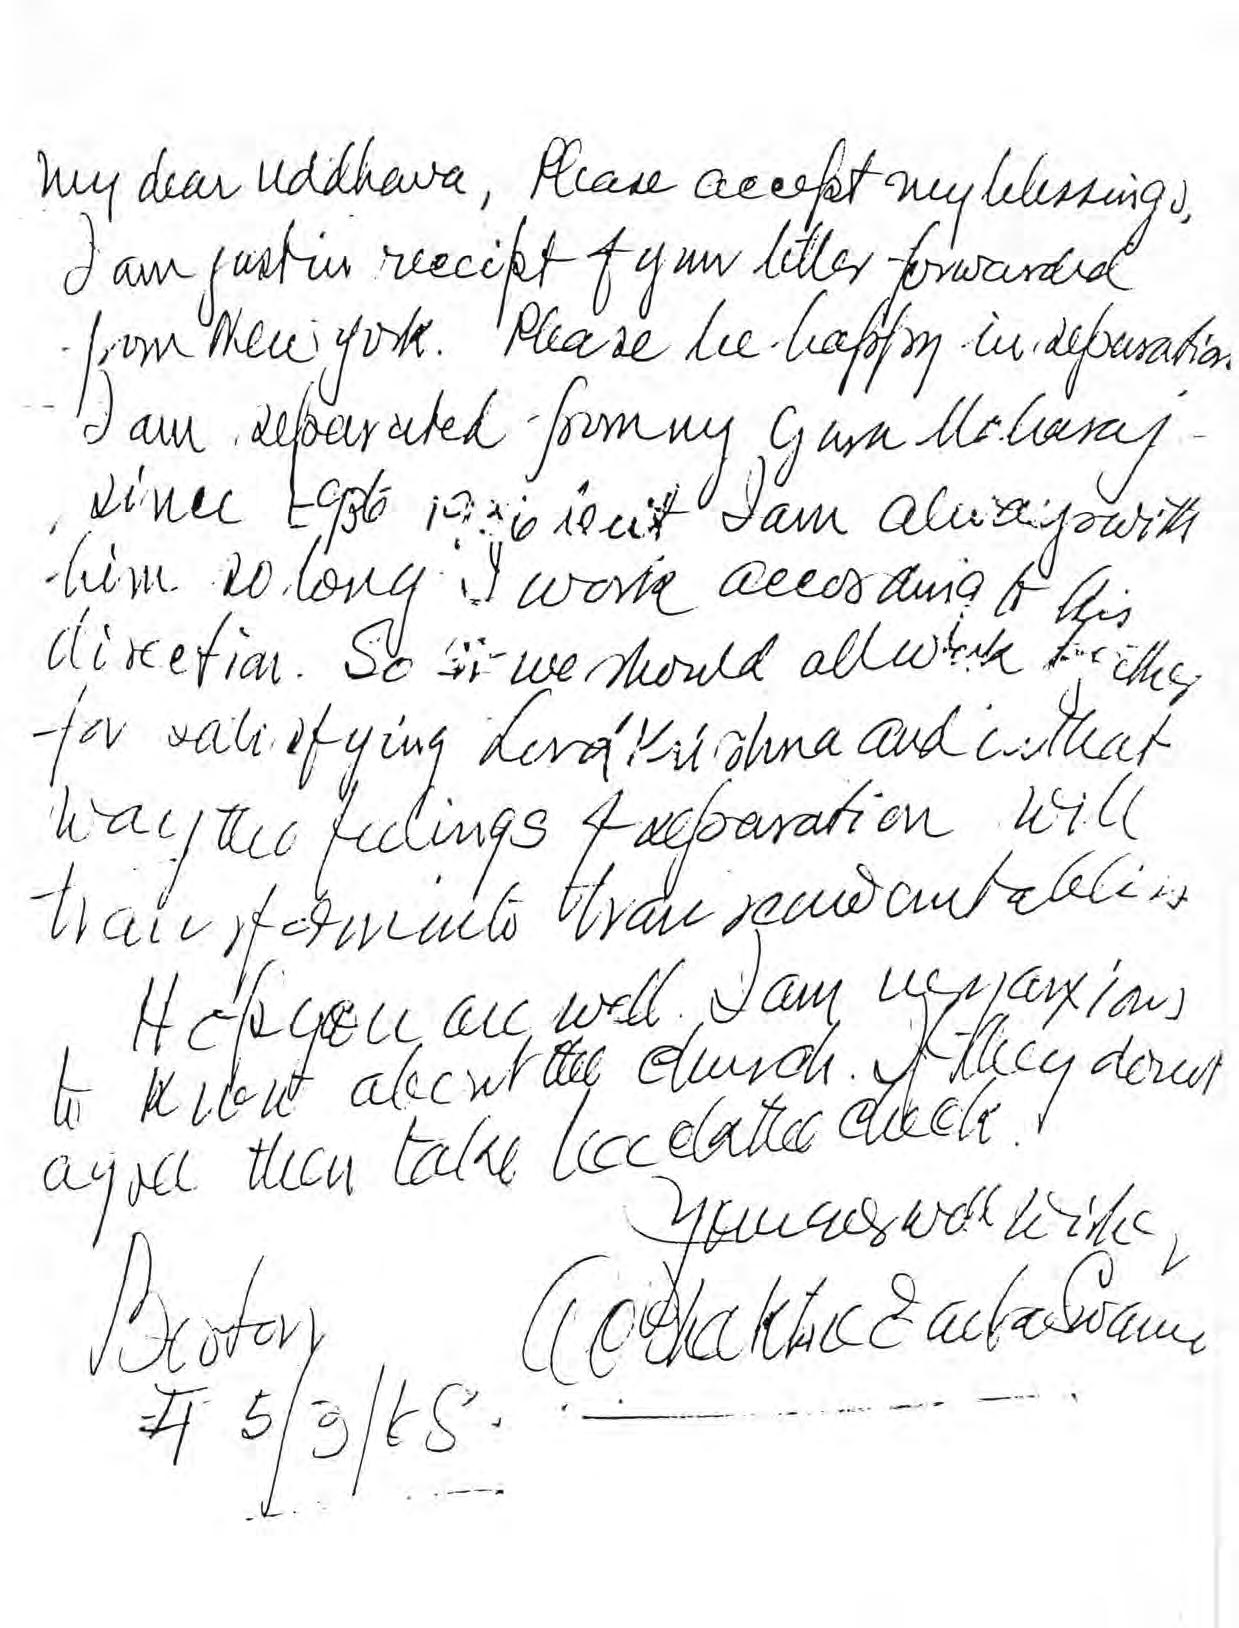 My dear Uddhava, Please accept my blessings.
I am just in receipt of your letter forwarded
from New York. Please be happy in separation.
I am separated from my Guru Maharaj
since 1936 but I am always with
him so long I work according to his
direction. So we should all work together
for satisfying Lord Krishna and in that
way the feelings of separation will
transform into transcendental bliss
Hope you are well. I am very anxious
to know about the church. If they do not
agree then take back the check.
Your ever well wisher,
A C Bhaktivedanta Swami
Boston
5/3/68.